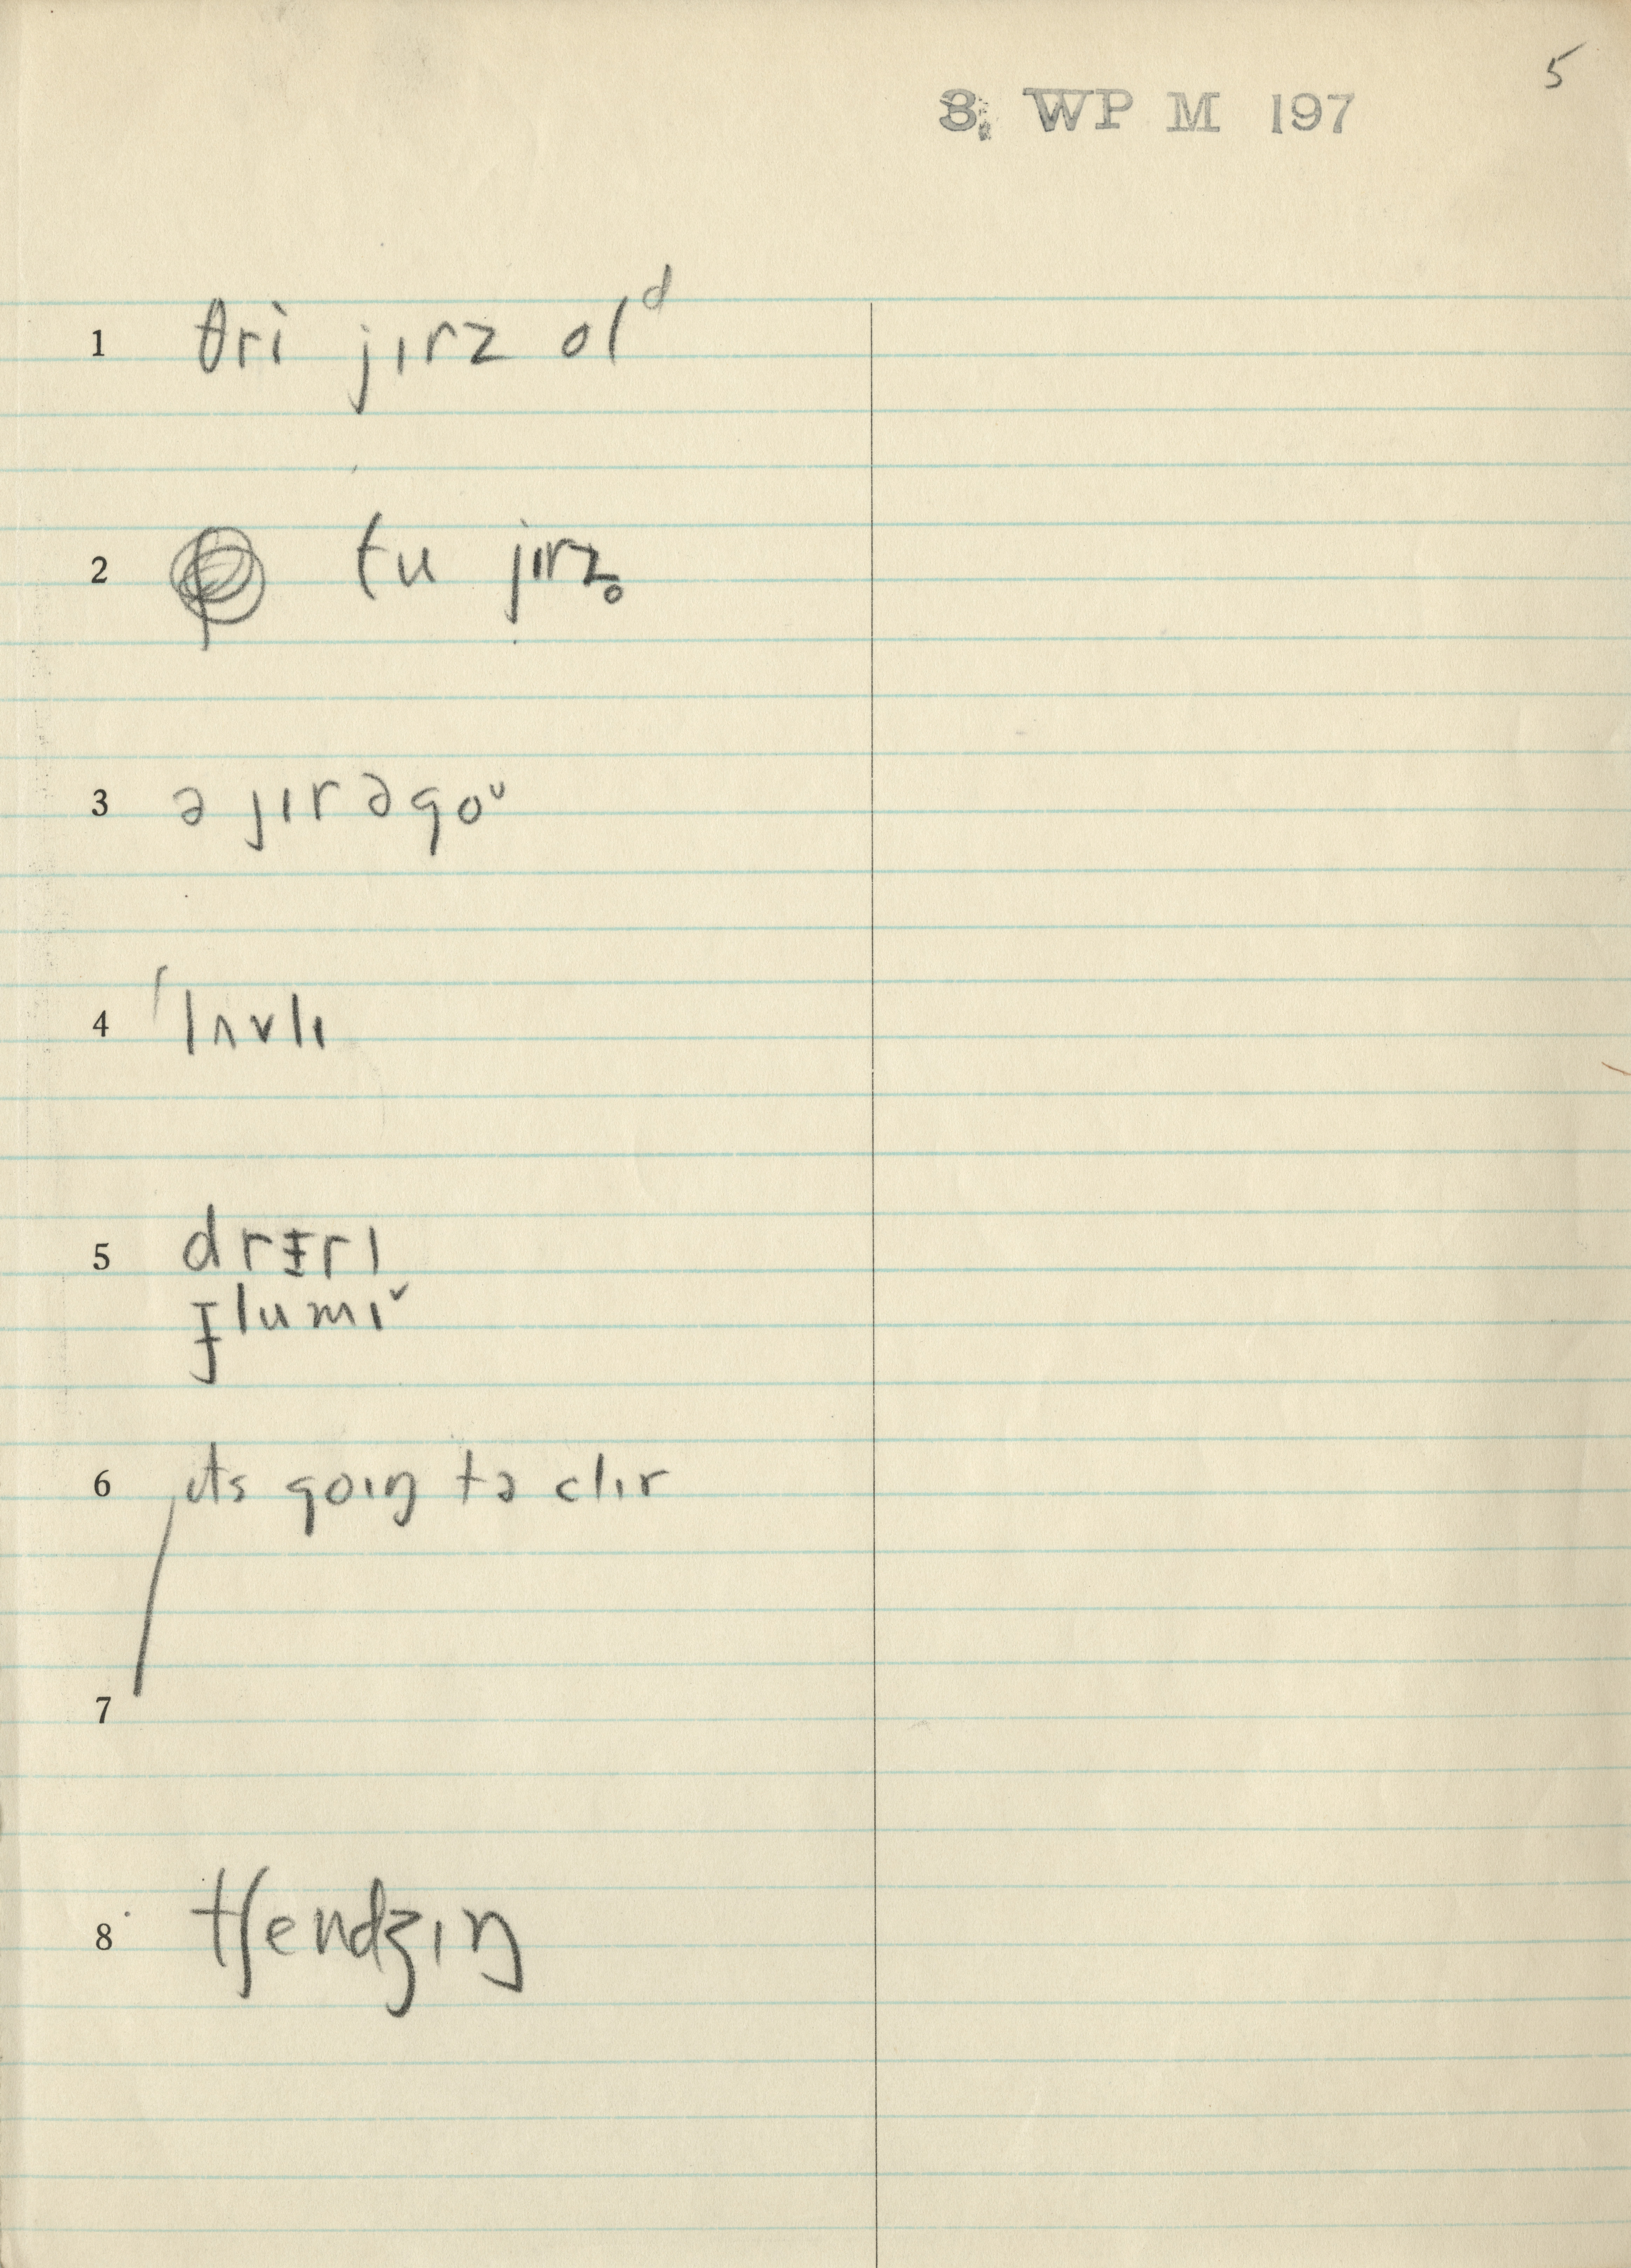 5
3. WP M 197
1 θri jɪrz olᵈ
2 tu jɪrz̥
3 ə jɪr əgoᵛ
4 ˈlʌvlɪ
5 drɪrɪ
glumɪˇ
6 ɪts goɪŋ tə clɪr
7
8 tʃendʒɪŋ